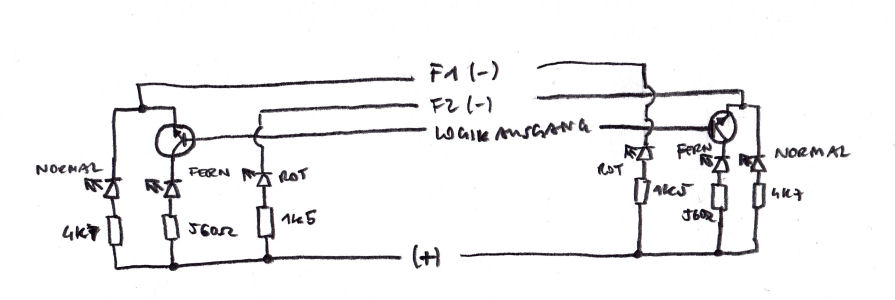 F1 (-)
F2 (-)
LOGIKAUSGANG
NORMAL
FERN
ROT
4k7
560Ω
1k5
ROT
FERN
NORMAL
1k5
560Ω
4k7
(+)